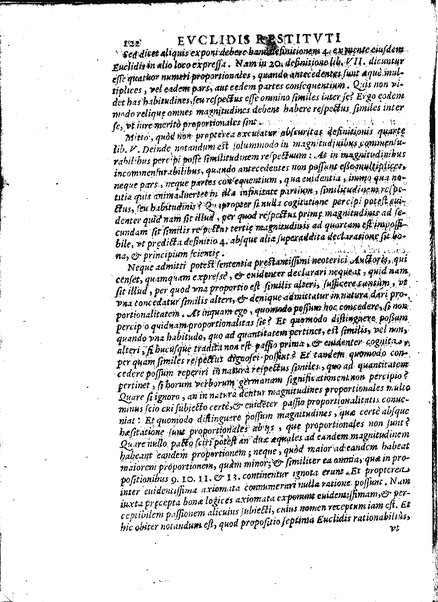 122 EVCLIDIS RESTITVTI
Sed dicet aliquis exponi debere hanc definitionem 4. ex mente eiusdem
Euclidis in alio loco expressa. Nam in 20. definitione lib. VII. dicuntur
esse quatuor numeri proportionales, quando antecedentes sunt æque mul-
tiplices, vel eadem pars, aut eædem partes consequentium. Quis non vi-
det has habitudines, seu respectus esse omnino similes inter se? Ergo eodem
modo reliquæ omnes magnitudines debent habere respectus similes inter
se, vt iure merito proportionales sint.
Mitto, quòd non propterea excutatur obscuritas definitionis quartæ
lib. V. Deinde notandum est solummodo in magnitudinibus commensu-
rabilibus percipi posse similitudinem respectuum: At in magnitudinibus
incommensurabilibus, quando antecedentes non possunt esse multiplices,
neque pars, neque partes consequentium, qua euidentia, immo qua no-
titia quis animaduertet in illa infinitate partium, similitudinem respe-
ctus, seu habitudinis? Quapropter si nulla cogitatione percipi potest eui-
denter quid nam sit illud, per quod respectus primæ magnitudinis ad se-
cundam sit similis respectui tertiæ magnitudinis ad quartam est impossi-
bile, vt prædicta definitio 4. absque alia superaddita declaratione sit bo-
na, & principium scientiæ.
Neque admitti potest sententia præstantissimi neoterici Auctoris, qui
censet, quamquam expressè, & euidenter declarari nequeat, quid nam
sit illud, per quod vna proportio est similis alteri, sufficere tamen, vt
vna concedatur similis alteri, & denique admittatur in natura dari pro-
portionalitatem. At inquam ego, quomodo possum hoc concedere, si non
percipio quidnam proportionalitas sit? Et quomodo distinguere possum
quando vna habitudo, quo ad quantitatem pertinet, est similis, vel non,
alteri, si hucusque tradita non est passio prima, & euidenter cognita,
per quam similes respectus dignosci possunt? Et tandem quomodo con-
cedere possum reperiri in natura respectus similes, quo ad quantitatem
pertinet, si horum verborum germanam significationem non percipio?
Quare si ignoro, an in natura dentur magnitudines proportionales nullo
minus scio cui subiecto certè, & euidēter passio proportionalitatis conue-
niat: Et quomodo distinguere possum magnitudines, quæ certè absque
hæsitatione sunt proportionales ab ijs, quæ proportionales non sunt?
Quare nullo pacto sciri potest an duæ æquales ad eandem magnitudinem
habeant eandem proportionem, & neque, quòd maior ad eandem habeat
maiorem proportionem, quàm minor; & similiter ea omnia, quæ in pro-
positionibus 9. 10. 11. & 13. continentur ignota erunt. Et propterea
inter euidentissima axiomata connumerari nulla ratione possunt. Nam
iuxta præcepta bonæ logices axiomata exponunt euidentissimam, & per-
ceptibilem passionem alicuius subiecti, cuius nomen receptum iam est. Et
hic obiter notandum est, quod propositio septima Euclidis rationabiliùs,
vt